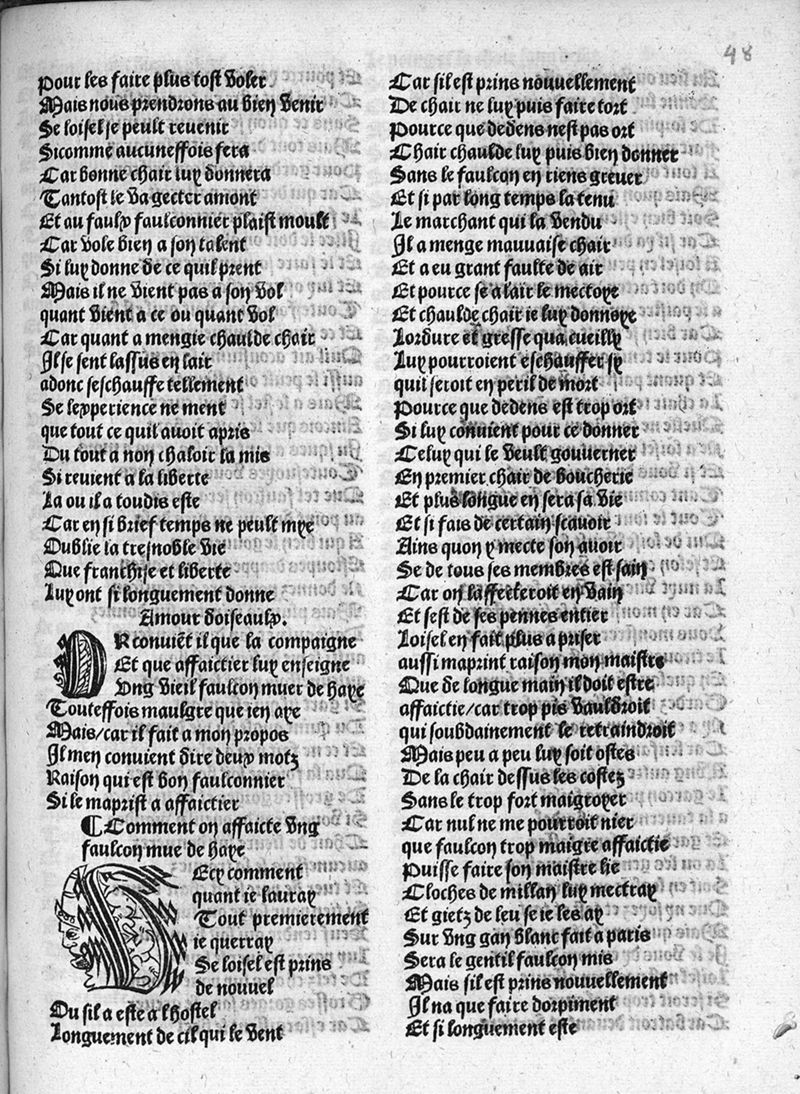 48
Pour les faire plus tost voler
Mais nous prendrons au bien venir
Se loisel je peult revenir
Sicomme aucuneffois fera
Car bonne chair luy donnera
Tantost le va gecter amont
Et au faulx faulconnier plaist moult
Car vole bien a son talent
Si luy donne de ce quil prent
Mais il ne vient pas a son vol
quant vient a ce ou quant vol
Car quant a mengie chaulde chair
Il se sent lassus en lair
adonc seschauffe tellement
Se lexperience ne ment
que tout ce quil avoit apris
Du tout a non chaloir la mis
Si revient a la liberte
La ou il a toudis este
Car en si brief temps ne peult mye
Oublie la tresnoble vie
Que franchise et liberte
Luy ont si longuement donne
Amour doiseaulx.
OR convieˉt il que la compaigne
Et que affaictier luy enseigne
Ung vieil faulcon muer de haye
Touteffois maulgre que ien aye
Mais/car il fait a mon propos
Il men convient dire deux motz
Raison qui est bon faulconnier
Si le maprist a affaictier
¶ Comment on affaicte ung
faulcon mue de haye
Ecy comment
quant ie lauray
Tout premierement
ie querray
Se loisel est prins
de nouvel
Ou sil a este a lhostel
Longuement de cil qui le vent
Car sil est prins nouvellement
De chair ne luy puis faire tort
Pource que dedens nest pas ort
Chair chaulde luy puis bien donner
Sans le faulcon en riens grever
Et si par long temps la tenu
Le marchant qui la vendu
Il a menge mauvaise chair
Et a eu grant faulte de air
Et pource se a lair le mectoye
Et chaulde chair ie luy donnoye
Lordure et gresse qua cueilly
Luy pourroient eschauffer sy
quil seroit en peril de mort
Pource que dedens est trop ort
Si luy convient pour ce donner
Celuy qui le veult gouverner
En premier chair de boucherie
Et plus longue en sera sa vie
Et si fais de certain scavoir
Ains quon y mecte son avoir
Se de tous ses membres est sain
Car on laffecteroit en vain
Et sest de ses pennes entier
Loisel en fait plus a priser
aussi maprint raison mon maistre
Que de longue main il doit estre
affaictie/car trop pis vauldroit
qui soubdainement le retraindroit
Mais peu a peu luy soit ostes
De la chair dessus les costez
Sans le trop fort maigroyer
Car nul ne me pourroit nier
que faulcon trop maigre affaictie
Puisse faire son maistre lie
Cloches de millan luy mectray
Et gietz de leu se ie les ay
Sur ung gan blanc fait a paris
Sera le gentil faulcon mis
Mais sil est prins nouvellement
Il na que faire dorpiment
Et si longuement este